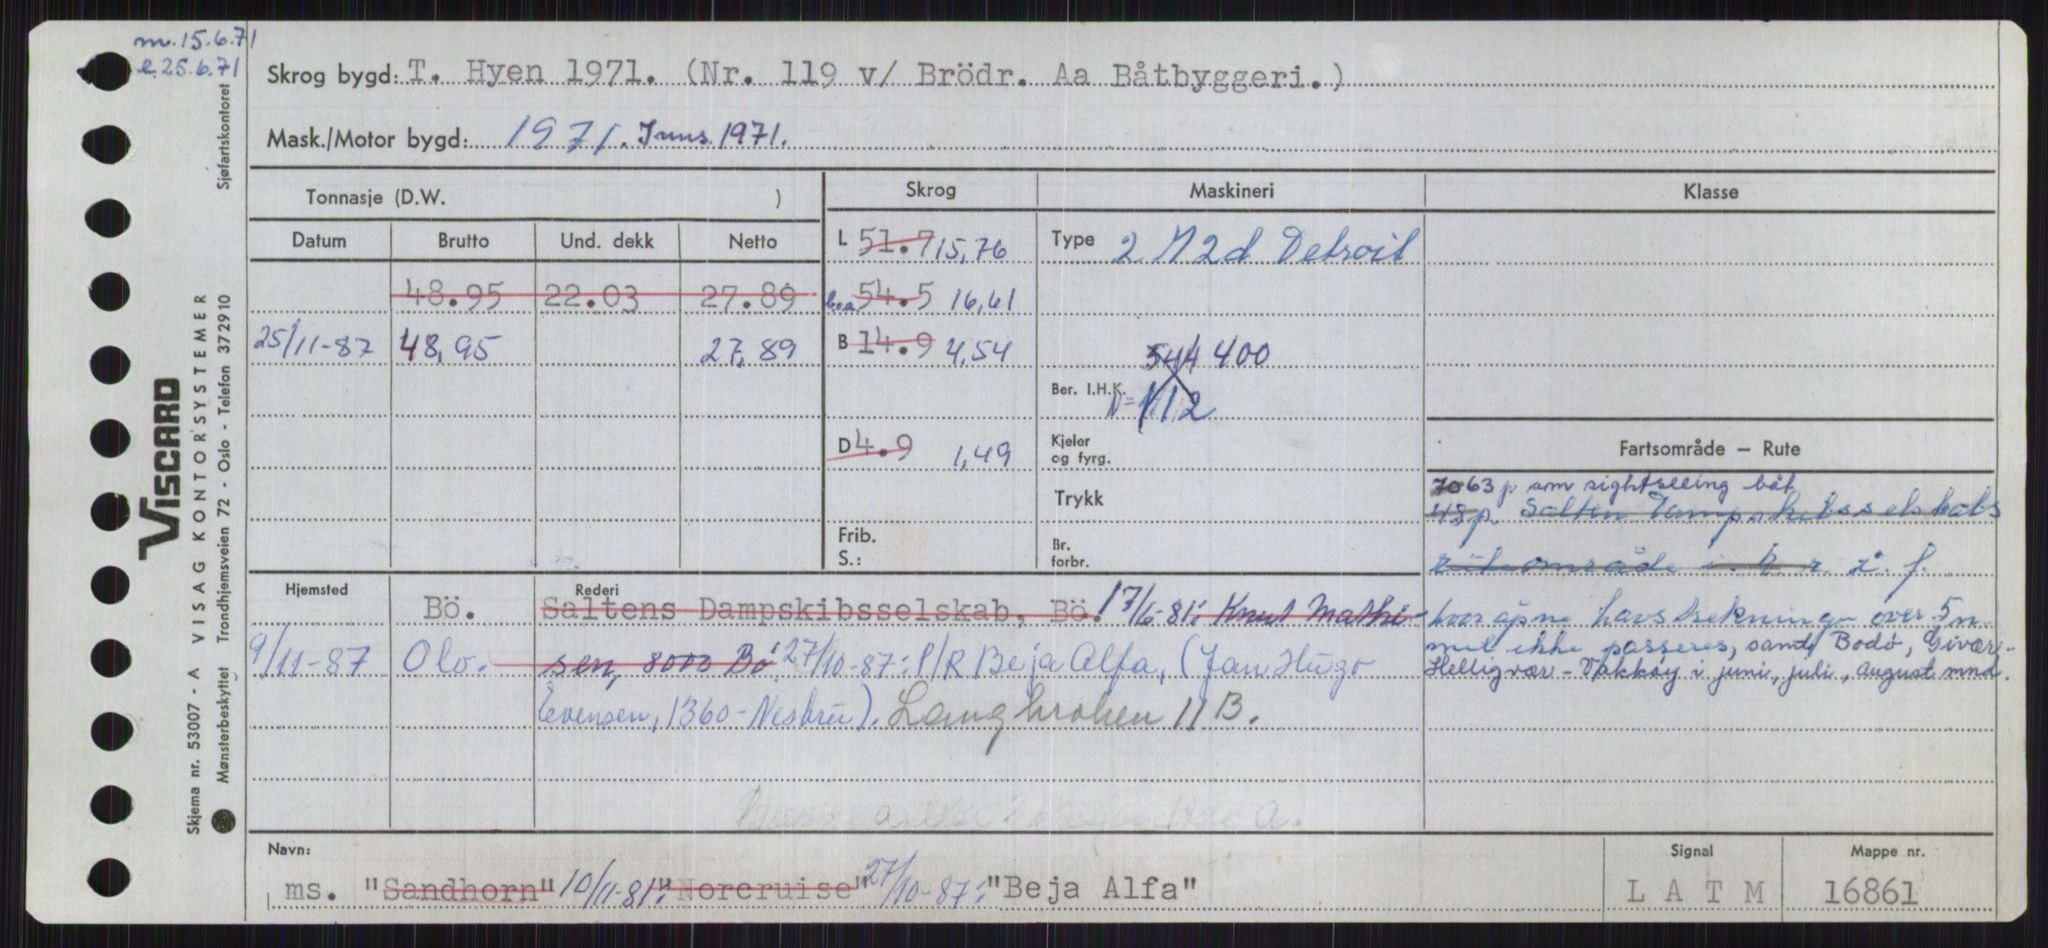 m. 15.6.71
e. 25.6.71
Skrog bygd: T. Hyen 1971. (Nr. 119 v/ Brödr. Aa Båtbyggeri.)
Mask./Motor bygd: 1971. 1971.
Tonnasje (D.W. )
Skrog
Maskineri
Klasse
Datum
Brutto
Und. dekk
Netto
L 51.7 15,76
Type 2 Detroit
48.95 22.03 27.89
boa 54.5 16,61
25/11-87 48,95 27,89
B 14.9 4,54
544 400
Ber. I.H.K. N= 112
D 4.9 1,49
Kjeler og fyrg.
Trykk
Frib.
S.:
Br. forbr.
Fartsområde – Rute
70 63 p som sightseeing båt
48 p. Salten Dampskibsselskabs
ruteområde i
hvor åpne havstrekninger over 5 n.
mil ikke passeres, samt Bodø, Givær-
Helligvær - i juni, juli, august mnd.
Hjemsted
Rederi
Bö. Saltens Dampskibsselskab, Bö. 17/6-81: Knut Mathi-
9/11-87 Olo. sen, 8000 Bö. 27/10-87: P/R Beja Alfa, (Jan Hugo
Evensen, 1360-Nesbru). 11 B.
Navn:
ms. "Sandhorn" 10/11-81: "Norcruise" 27/10-87: "Beja Alfa"
Signal
L A T M
Mappe nr.
16861
Sjøfartskontoret
VISCARD
Skjema nr. 53007 - A VISAG KONTORSYSTEMER
Mønsterbeskyttet Trondhjemsveien 72 - Oslo - Telefon 37 29 10